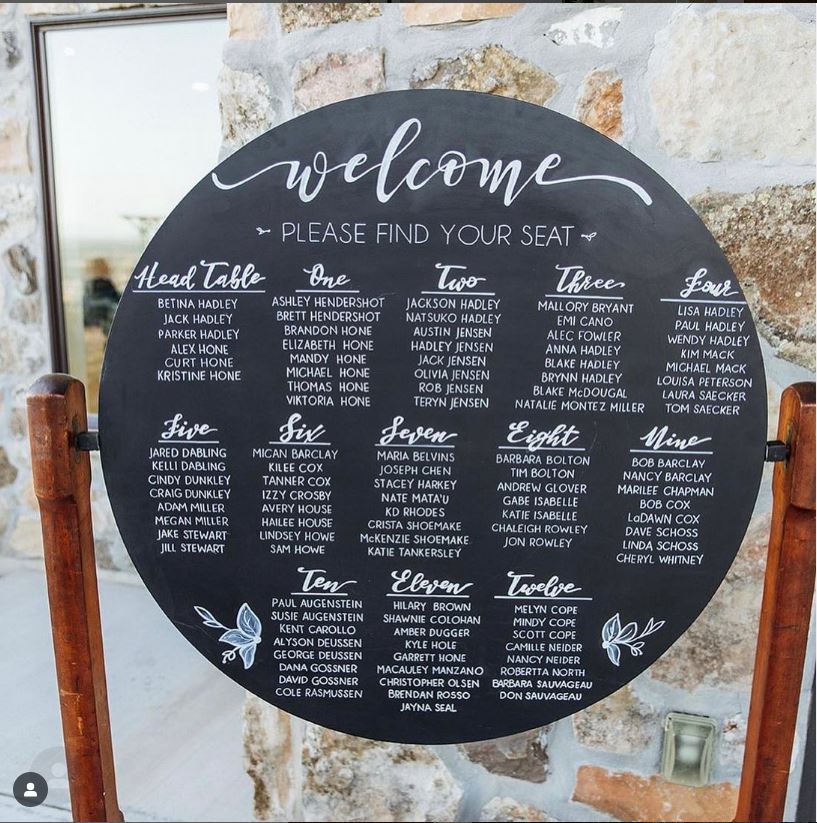 welcome
PLEASE FIND YOUR SEAT
Head Table
BETINA HADLEY
JACK HADLEY
PARKER HADLEY
ALEX HONE
CURT HONE
KRISTINE HONE
One
ASHLEY HENDERSHOT
BRETT HENDERSHOT
BRANDON HONE
ELIZABETH HONE
MANDY HONE
MICHAEL HONE
THOMAS HONE
VIKTORIA HONE
Two
JACKSON HADLEY
NATSUKO HADLEY
AUSTIN JENSEN
HADLEY JENSEN
JACK JENSEN
OLIVIA JENSEN
ROB JENSEN
TERYN JENSEN
Three
MALLORY BRYANT
EMI CANO
ALEC FOWLER
ANNA HADLEY
BLAKE HADLEY
BRYNN HADLEY
BLAKE McDOUGAL
NATALIE MONTEZ MILLER
Four
LISA HADLEY
PAUL HADLEY
WENDY HADLEY
KIM MACK
MICHAEL MACK
LOUISA PETERSON
LAURA SAECKER
TOM SAECKER
Five
JARED DABLING
KELLI DABLING
CINDY DUNKLEY
CRAIG DUNKLEY
ADAM MILLER
MEGAN MILLER
JAKE STEWART
JILL STEWART
Six
MICAN BARCLAY
KILEE COX
TANNER COX
IZZY CROSBY
AVERY HOUSE
HAILEE HOUSE
LINDSEY HOWE
SAM HOWE
Seven
MARIA BELVINS
JOSEPH CHEN
STACEY HARKEY
NATE MATA'U
KD RHODES
CRISTA SHOEMAKE
McKENZIE SHOEMAKE
KATIE TANKERSLEY
Eight
BARBARA BOLTON
TIM BOLTON
ANDREW GLOVER
GABE ISABELLE
KATIE ISABELLE
CHALEIGH ROWLEY
JON ROWLEY
Nine
BOB BARCLAY
NANCY BARCLAY
MARILEE CHAPMAN
BOB COX
LaDAWN COX
DAVE SCHOSS
LINDA SCHOSS
CHERYL WHITNEY
Ten
PAUL AUGENSTEIN
SUSIE AUGENSTEIN
KENT CAROLLO
ALYSON DEUSSEN
GEORGE DEUSSEN
DANA GOSSNER
DAVID GOSSNER
COLE RASMUSSEN
Eleven
HILARY BROWN
SHAWNIE COLOHAN
AMBER DUGGER
KYLE HOLE
GARRETT HONE
MACAULEY MANZANO
CHRISTOPHER OLSEN
BRENDAN ROSSO
JAYNA SEAL
Twelve
MELYN COPE
MINDY COPE
SCOTT COPE
CAMILLE NEIDER
NANCY NEIDER
ROBERTTA NORTH
BARBARA SAUVAGEAU
DON SAUVAGEAU